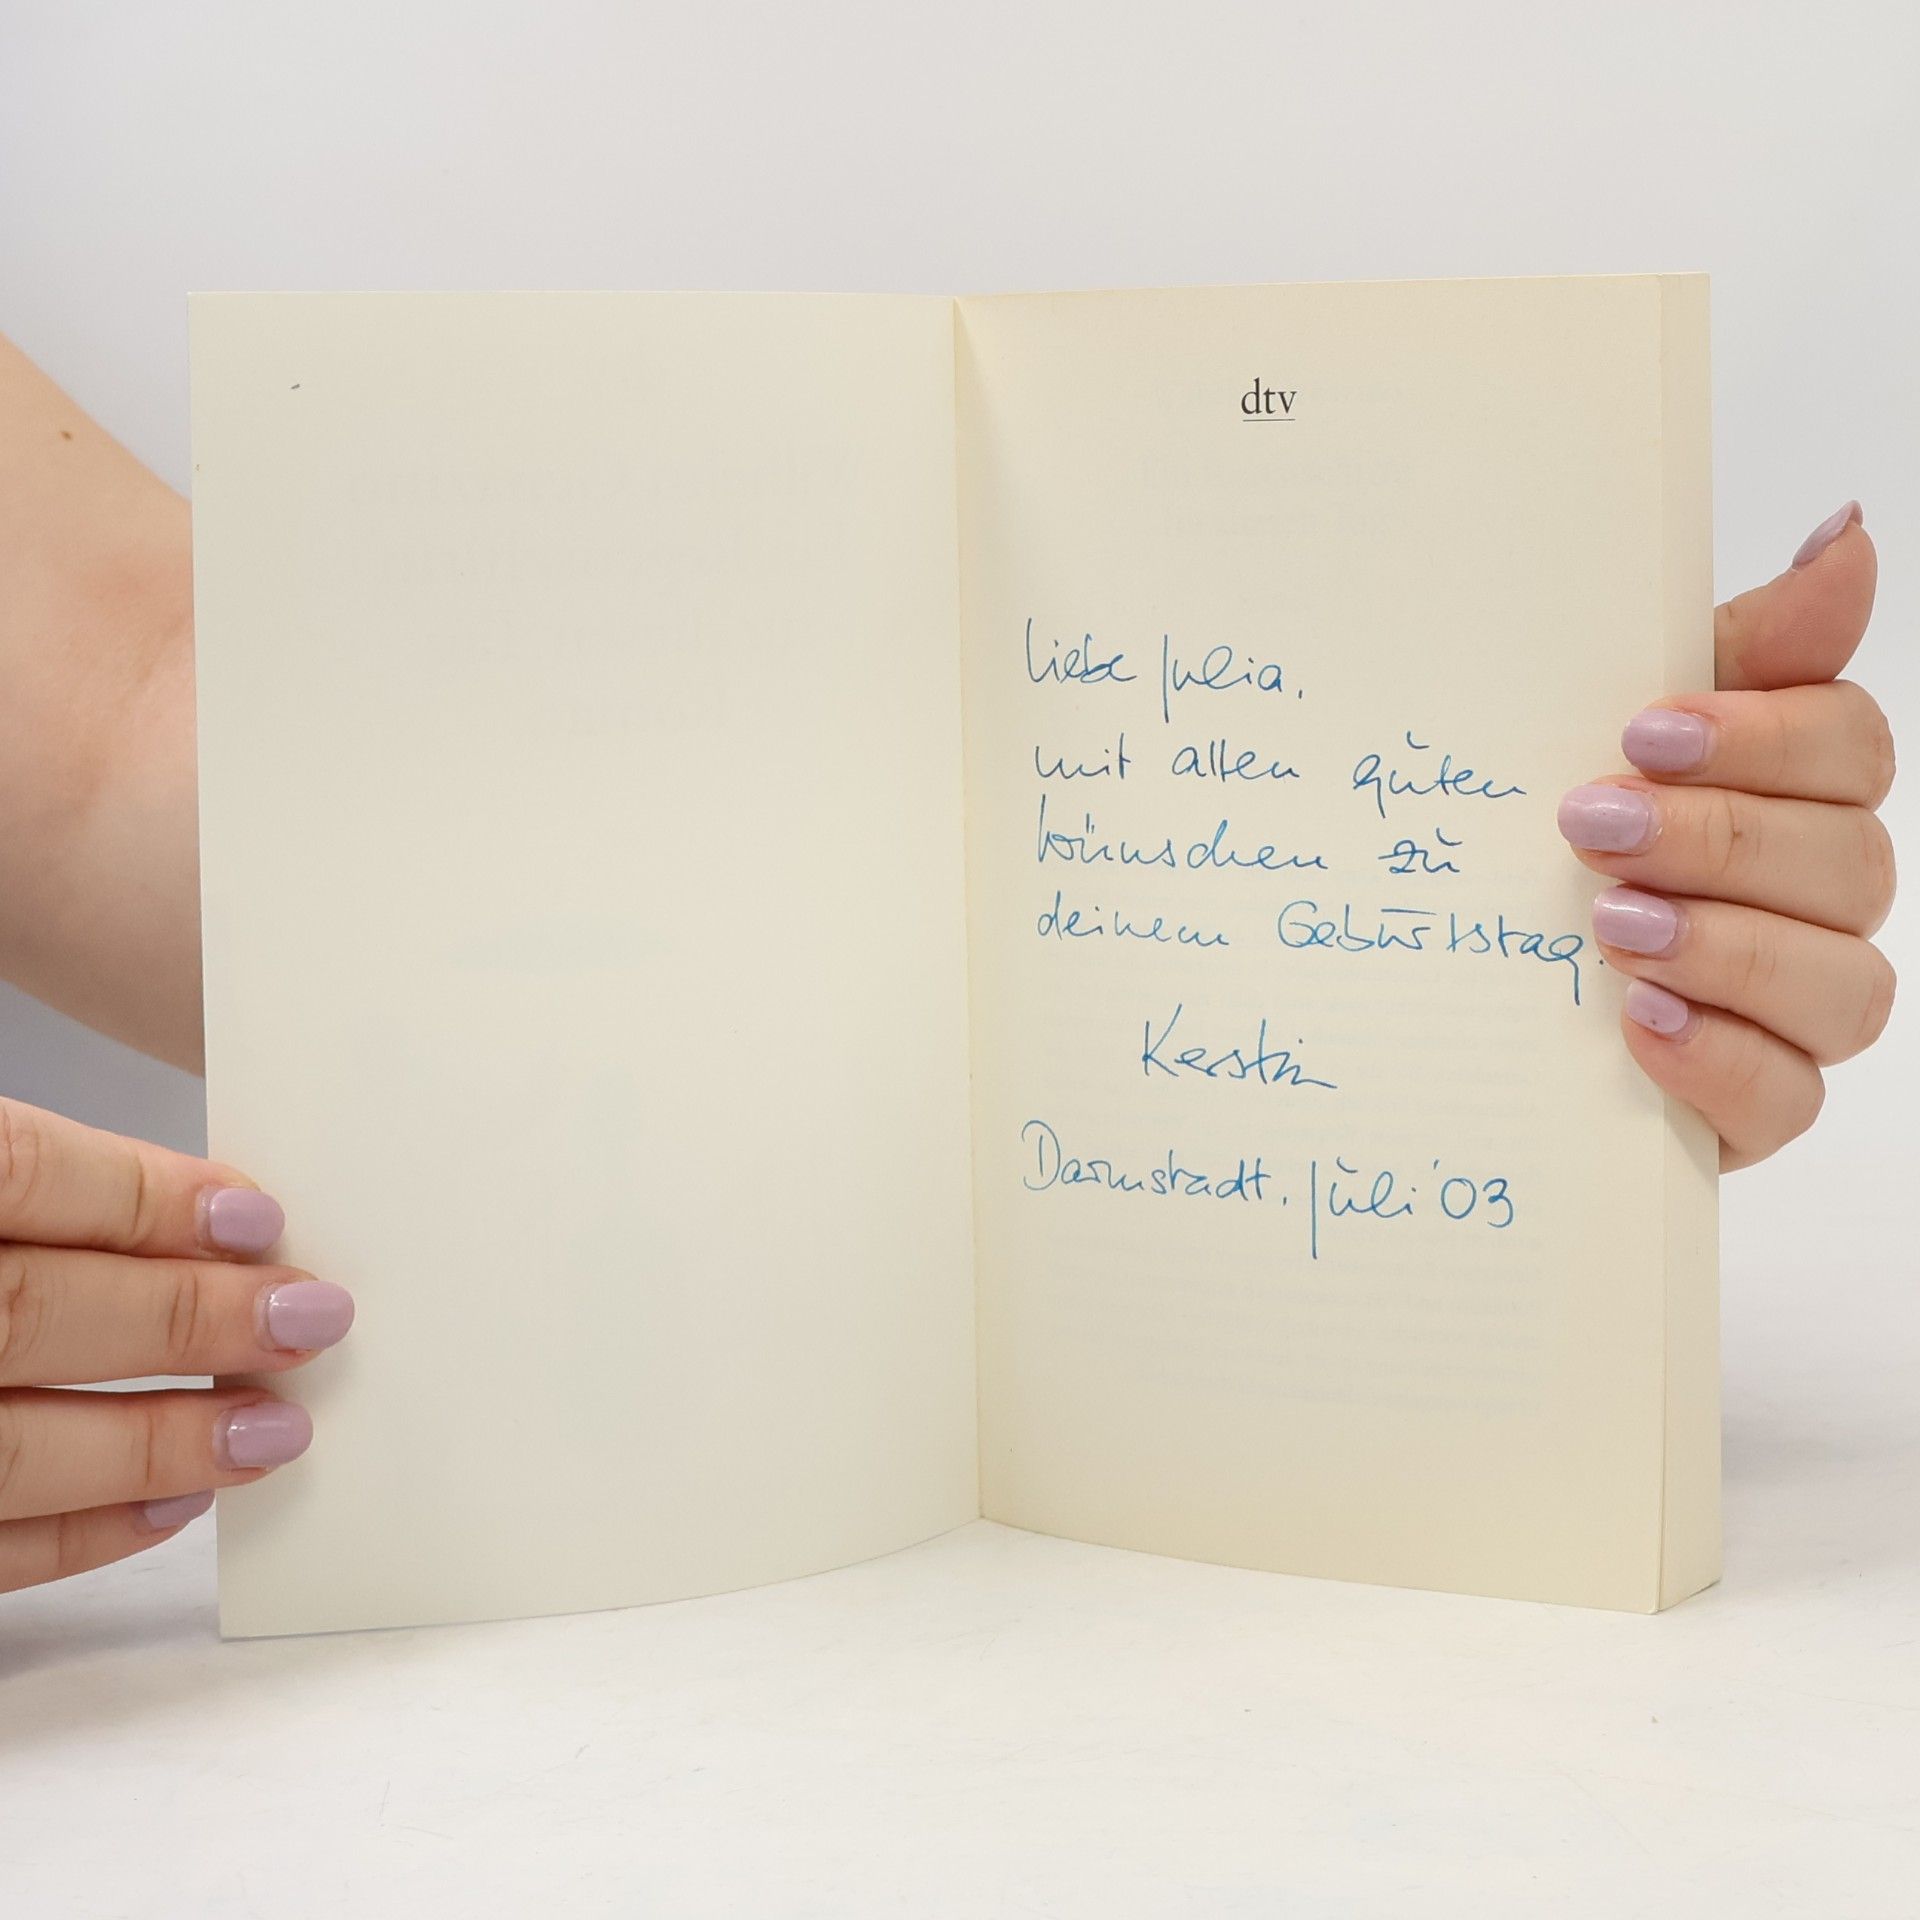 dtv
Liebe Julia,
mit allen guten
Wünschen zu
deinem Geburtstag.
Kerstin
Darmstadt, Juli '03